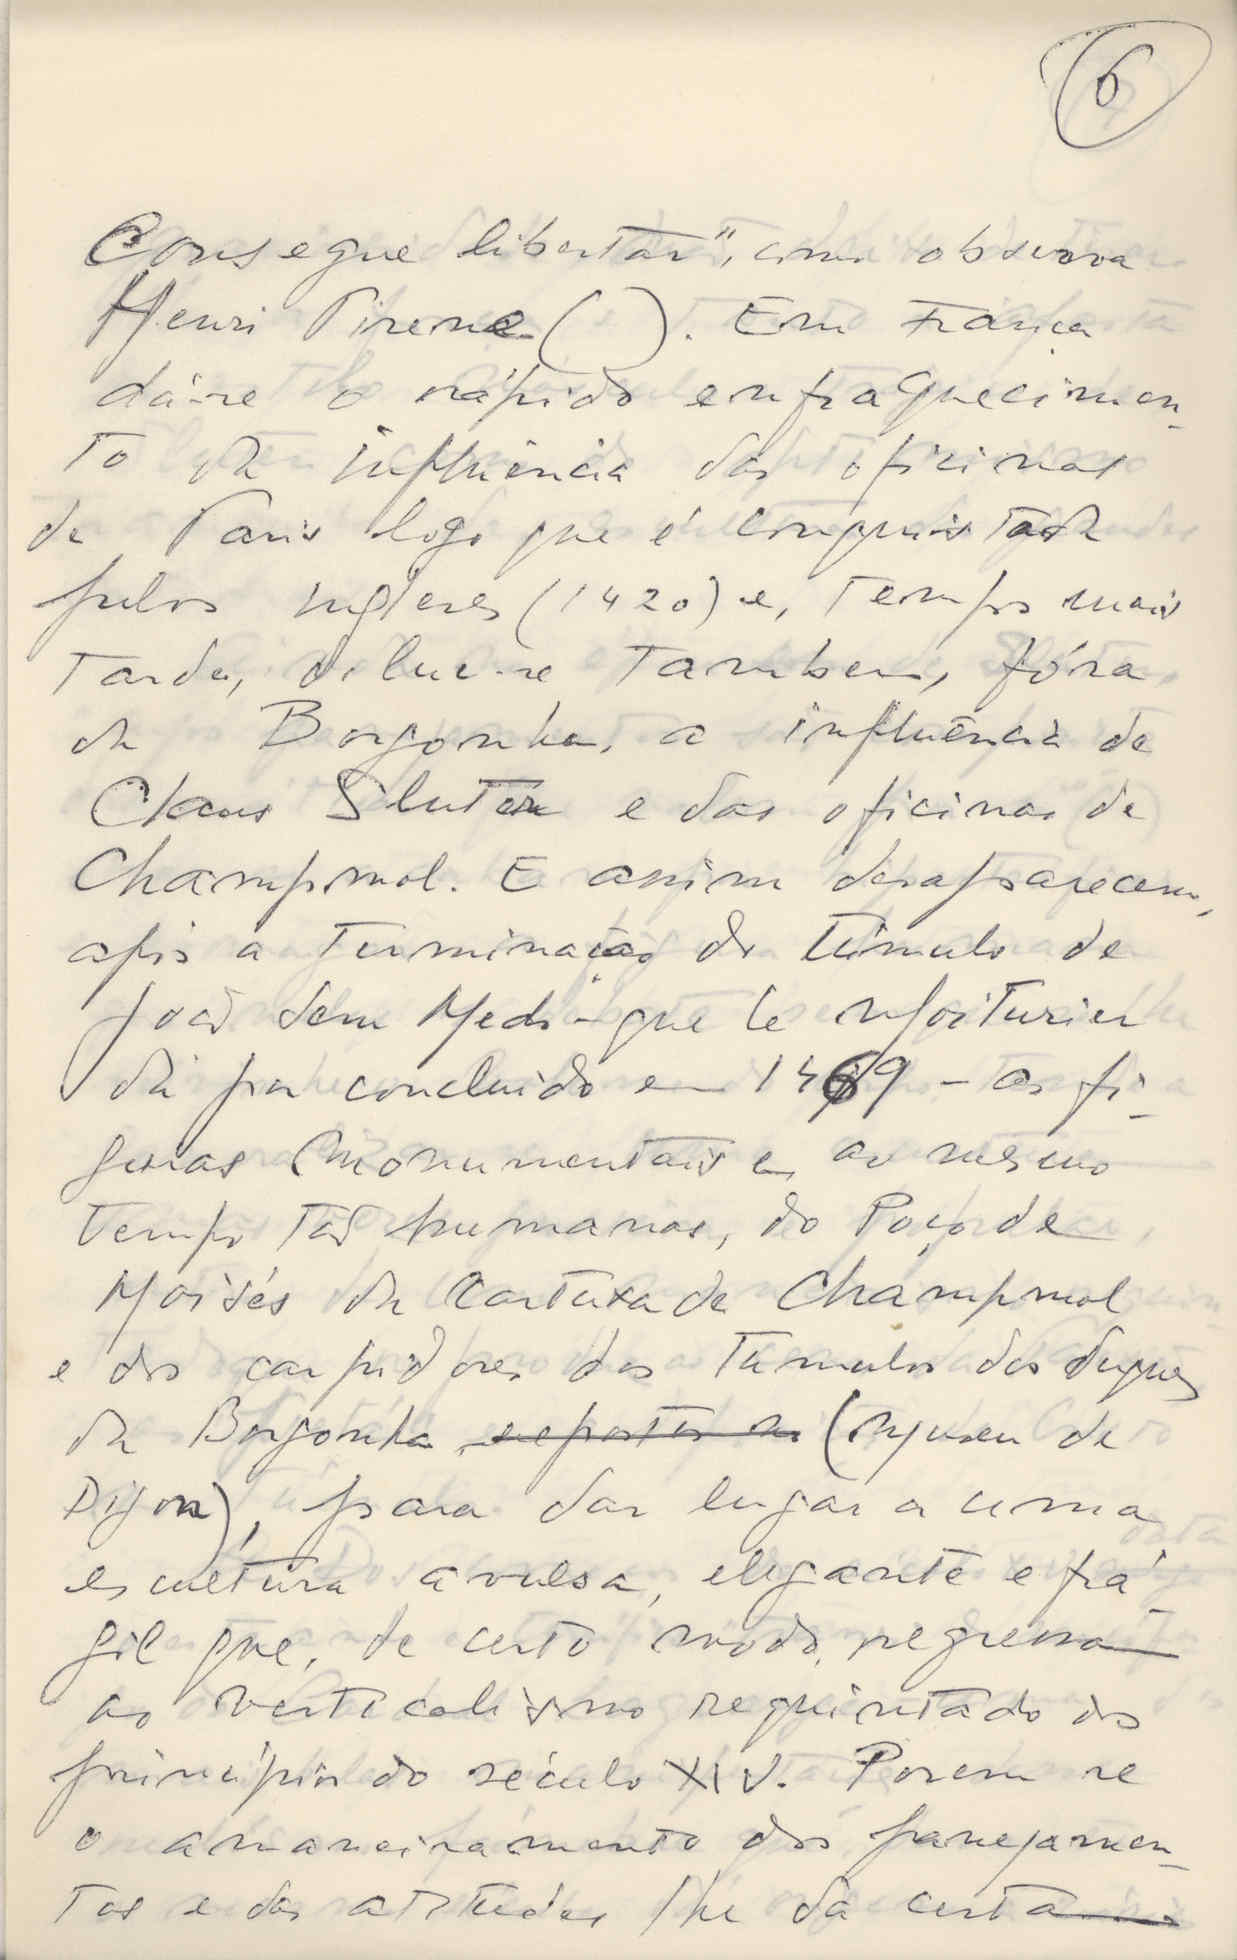 6
Consegue libertar", como observa
Henri Pirene ( ). Em França
dá-se o rápido enfraquecimen-
to da influência das oficinas
de Paris logo que é conquistada
pelos ingleses (1420) e, tempos mais
tarde, dilue-se tambem, fóra
da Borgonha, a influência de
Claus Sluter e das oficinas de
Champmol. E assim desaparecem,
após a terminação do túmulo de
João Sem Medo - que le Moiturier
dá por concluido em 1469 - as fi-
guras monumentais e, ao mesmo
tempo tão humanas, do Poço de
Moisés da Cartuxa de Champmol
e dos carpidores dos tumulos dos duques
da Borgonha (Museu de
Dijon), para dar lugar a uma
escultura avulsa, elegante e frá-
gil que, de certo modo, regressa
ao verticalismo requintado dos
princípios do século XIV. Porem se
o amaneiramento dos panejamen-
tos e das atitudes lhe dá certa